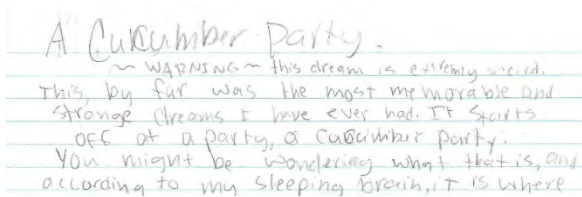 A Cucumber Party.
~ WARNING ~ this dream is extremly weird.
This, by far was the most memorable and
strange dreams I have ever had. It starts
off at a party, a cucumber party.
You might be wondering what that is, and
according to my sleeping brain, it is where